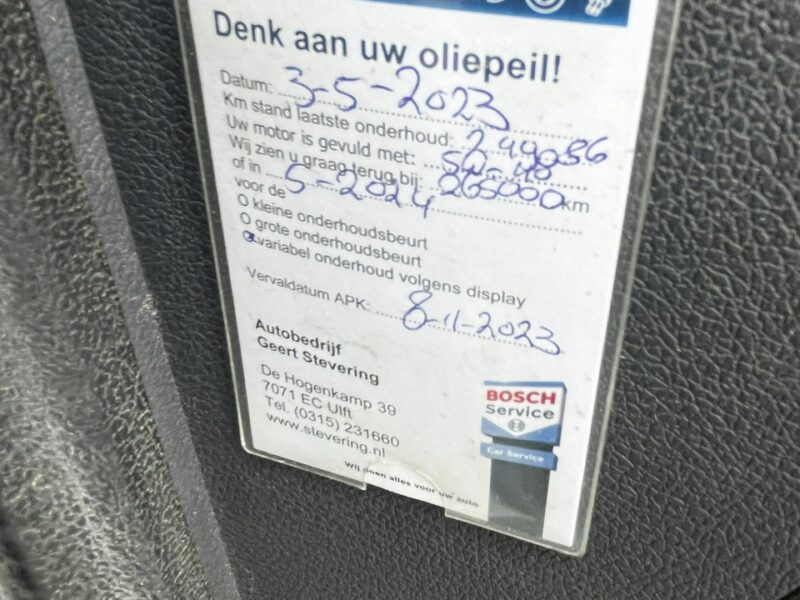 Denk aan uw oliepeil!
Datum: 3-5-2023
Km stand laatste onderhoud: 249086
Uw motor is gevuld met:
Wij zien u graag terug bij: 265000 km
of in 5-2024
voor de
O kleine onderhoudsbeurt
O grote onderhoudsbeurt
O variabel onderhoud volgens display
Vervaldatum APK: 8-11-2023
Autobedrijf
Geert Stevering
De Hogenkamp 39
7071 EC Ulft
Tel. (0315) 231660
www.stevering.nl
BOSCH
Service
Car Service
Wij doen alles voor uw auto